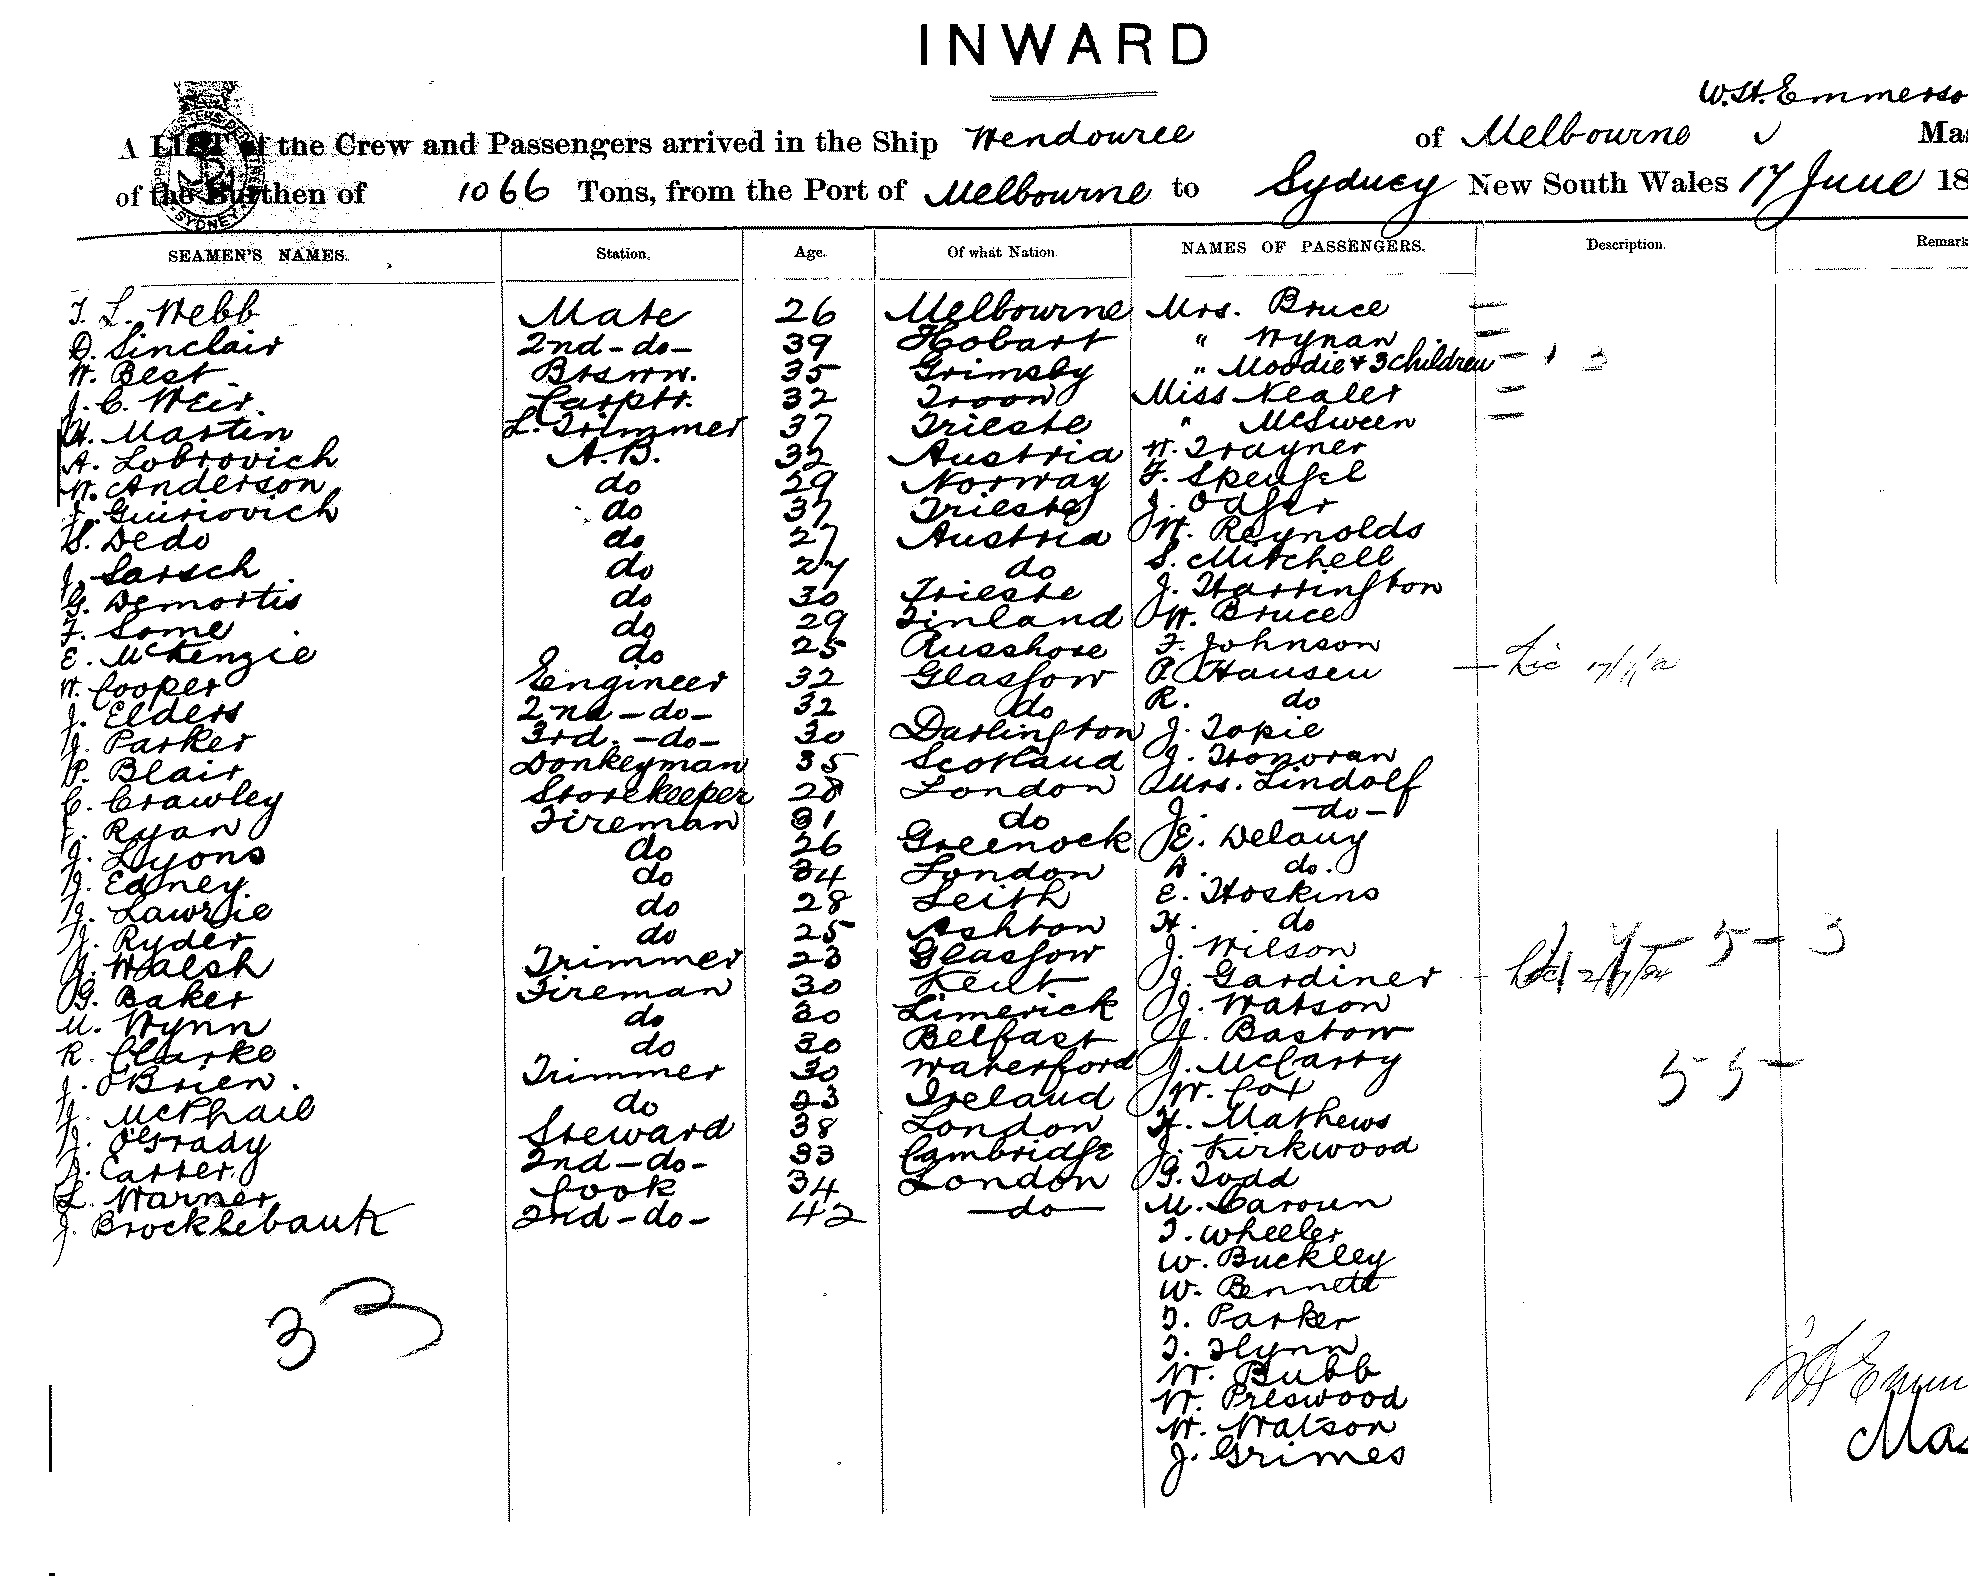 INWARD
W. H. Emmerso
A LIST of the Crew and Passengers arrived in the Ship Wendouree of Melbourne Mas
of the Burthen of 1066 Tons, from the Port of Melbourne to Sydney New South Wales 17 June 18
SEAMEN'S NAMES. Station. Age. Of what Nation NAMES OF PASSENGERS. Description. Remark
T. L. Webb Mate 26 Melbourne Mrs. Bruce —
D. Sinclair 2nd -do- 39 Hobart " Wynan —
W. Best Btswn. 35 Grimsby " Moodie & 3 children — 1 3
J. C. Weir. Carptr. 32 Troon Miss Nealer —
H. Martin L. Trimmer 37 Trieste " McSween —
A. Lobrovich A.B. 32 Austria W. Trayner
W. Anderson do 29 Norway F. Spengel
J. Guiriovich do 37 Trieste J. Odger
S. Dedo do 27 Austria W. Reynolds
J. Sarsch do 27 do S. Mitchell
G. Demortis do 30 Trieste J. Harrington
F. Some do 29 Finland W. Bruce
E. McKenzie do 25 Russhore F. Johnson
W. Cooper Engineer 32 Glasgow P. Hansen
J. Elders 2nd -do- 32 do R. do
J. Parker 3rd. -do- 30 Darlington J. Topie
P. Blair Donkeyman 35 Scotland J. Honoran
C. Crawley Storekeeper 28 London Mrs. Lindolf
J. Ryan Fireman 31 do J. -do-
J. Lyons do 26 Greenock E. Delany
J. Edney. do 34 London A. do.
J. Lawrie do 28 Leith E. Hoskins
J. Ryder do 25 Ashton H. do
J. Walsh Trimmer 23 Glasgow J. Wilson 5 - 3
G. Baker Fireman 30 Kent J. Gardiner
M. Wynn do 30 Limerick J. Watson
R. Clarke do 30 Belfast J. Bastow
J. O'Brien. Trimmer 30 Waterford J. McCarry 5 5 -
J. McPhail do 23 Ireland W. Cox
J. O'Grady Steward 38 London H. Mathews
Carter. 2nd -do- 33 Cambridge J. Kirkwood
L. Warner Cook 34 London G. Todd
J. Brocklebank 2nd -do- 42 -do- M. Caroun
T. Wheeler
W. Buckley
W. Bennett
33 T. Parker
T. Flynn
W. Bubb
W. Preswood
W. Watson Mas
J. Grimes